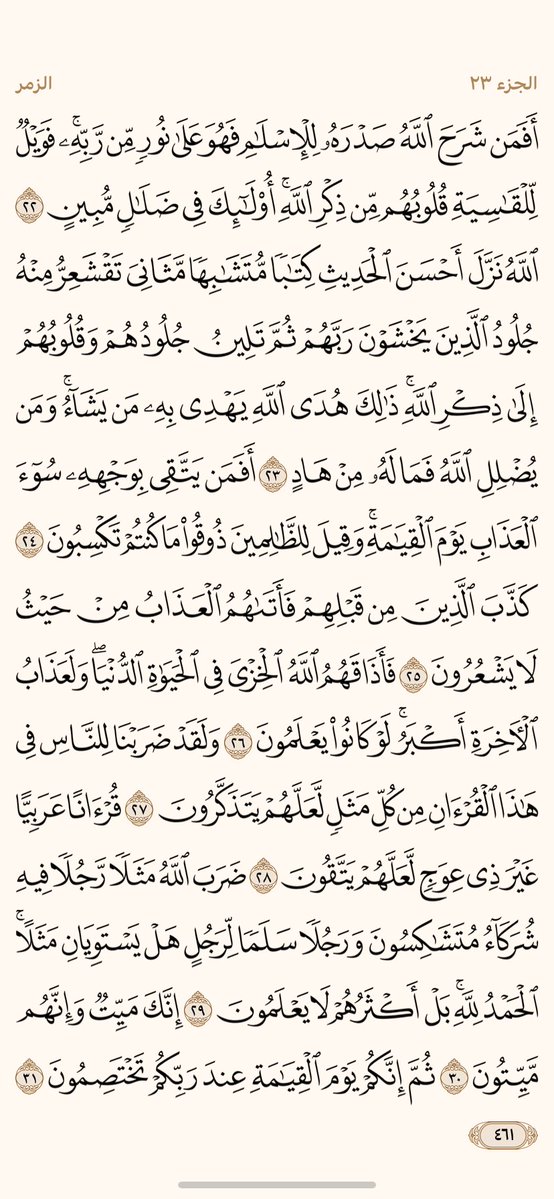 الجزء ٢٣
الزمر
أَفَمَن شَرَحَ ٱللَّهُ صَدْرَهُۥ لِلْإِسْلَـٰمِ فَهُوَ عَلَىٰ نُورٍ مِّن رَّبِّهِۦ ۚ فَوَيْلٌ
لِّلْقَـٰسِيَةِ قُلُوبُهُم مِّن ذِكْرِ ٱللَّهِ ۚ أُو۟لَـٰٓئِكَ فِى ضَلَـٰلٍ مُّبِينٍ ٢٢
ٱللَّهُ نَزَّلَ أَحْسَنَ ٱلْحَدِيثِ كِتَـٰبًا مُّتَشَـٰبِهًا مَّثَانِىَ تَقْشَعِرُّ مِنْهُ
جُلُودُ ٱلَّذِينَ يَخْشَوْنَ رَبَّهُمْ ثُمَّ تَلِينُ جُلُودُهُمْ وَقُلُوبُهُمْ
إِلَىٰ ذِكْرِ ٱللَّهِ ۚ ذَٰلِكَ هُدَى ٱللَّهِ يَهْدِى بِهِۦ مَن يَشَآءُ ۚ وَمَن
يُضْلِلِ ٱللَّهُ فَمَا لَهُۥ مِنْ هَادٍ ٢٣ أَفَمَن يَتَّقِى بِوَجْهِهِۦ سُوٓءَ
ٱلْعَذَابِ يَوْمَ ٱلْقِيَـٰمَةِ ۚ وَقِيلَ لِلظَّـٰلِمِينَ ذُوقُوا۟ مَا كُنتُمْ تَكْسِبُونَ ٢٤
كَذَّبَ ٱلَّذِينَ مِن قَبْلِهِمْ فَأَتَىٰهُمُ ٱلْعَذَابُ مِنْ حَيْثُ
لَا يَشْعُرُونَ ٢٥ فَأَذَاقَهُمُ ٱللَّهُ ٱلْخِزْىَ فِى ٱلْحَيَوٰةِ ٱلدُّنْيَا ۖ وَلَعَذَابُ
ٱلْـَٔاخِرَةِ أَكْبَرُ ۚ لَوْ كَانُوا۟ يَعْلَمُونَ ٢٦ وَلَقَدْ ضَرَبْنَا لِلنَّاسِ فِى
هَـٰذَا ٱلْقُرْءَانِ مِن كُلِّ مَثَلٍ لَّعَلَّهُمْ يَتَذَكَّرُونَ ٢٧ قُرْءَانًا عَرَبِيًّا
غَيْرَ ذِى عِوَجٍ لَّعَلَّهُمْ يَتَّقُونَ ٢٨ ضَرَبَ ٱللَّهُ مَثَلًا رَّجُلًا فِيهِ
شُرَكَآءُ مُتَشَـٰكِسُونَ وَرَجُلًا سَلَمًا لِّرَجُلٍ هَلْ يَسْتَوِيَانِ مَثَلًا ۚ
ٱلْحَمْدُ لِلَّهِ ۚ بَلْ أَكْثَرُهُمْ لَا يَعْلَمُونَ ٢٩ إِنَّكَ مَيِّتٌ وَإِنَّهُم
مَّيِّتُونَ ٣٠ ثُمَّ إِنَّكُمْ يَوْمَ ٱلْقِيَـٰمَةِ عِندَ رَبِّكُمْ تَخْتَصِمُونَ ٣١
٤٦١